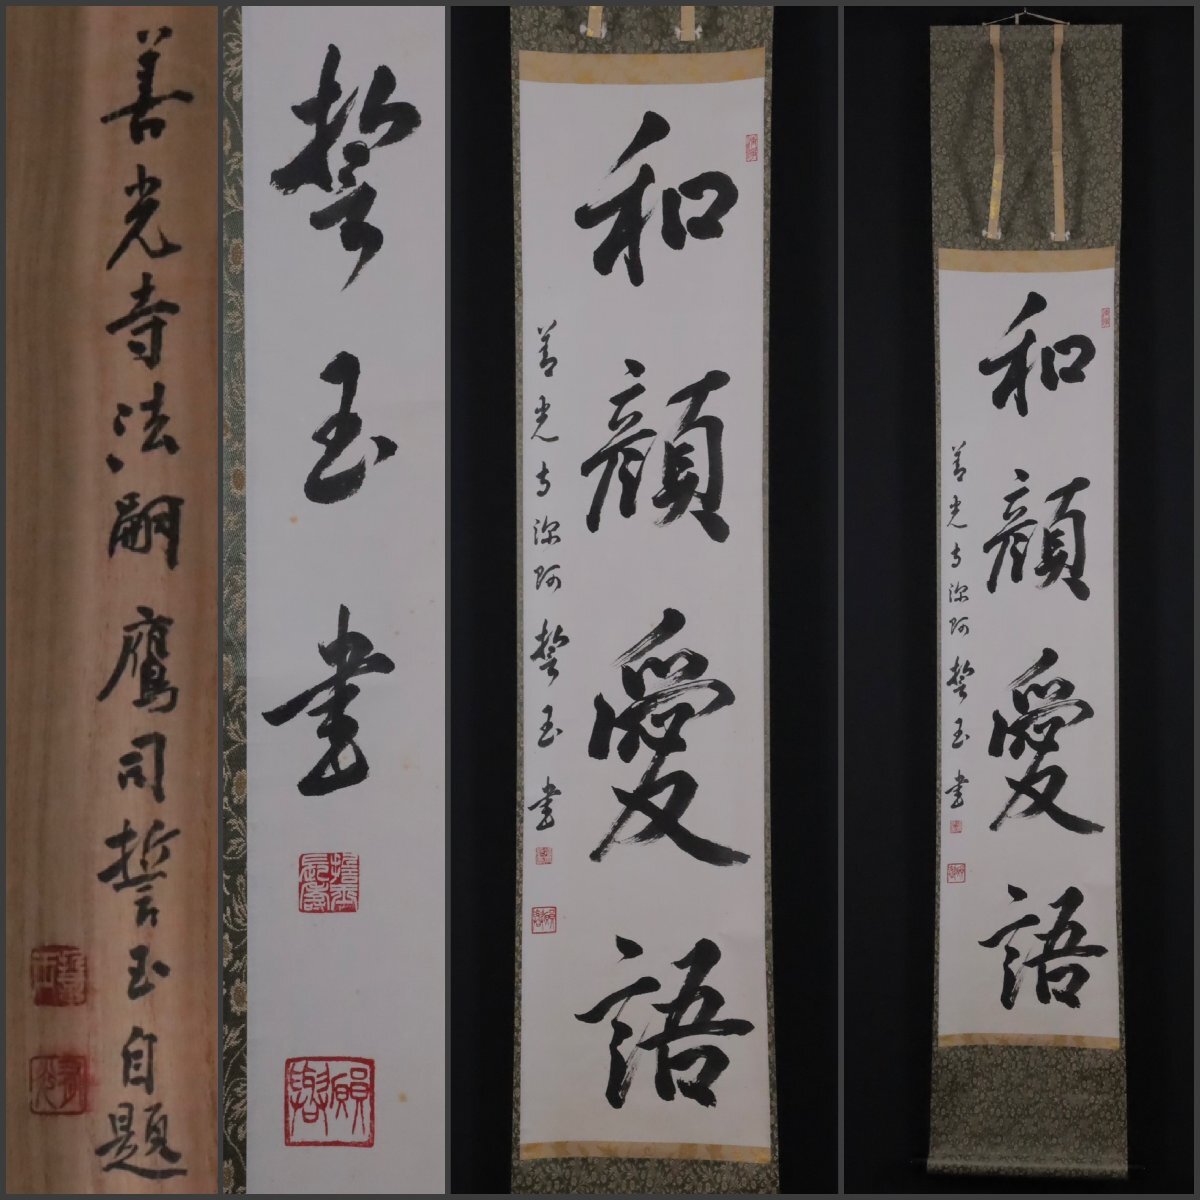 善光寺法嗣 鷹司誓玉自題
誓玉書
和顔愛語
善光寺深阿 誓玉書
和顔愛語
善光寺深阿 誓玉書